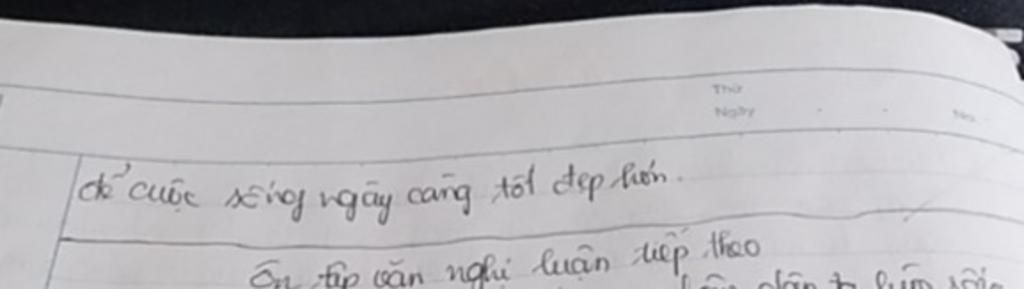 Thứ
Ngày No.
để cuộc sống ngày càng tốt đẹp hơn.
Ôn tập văn nghị luận tiếp theo